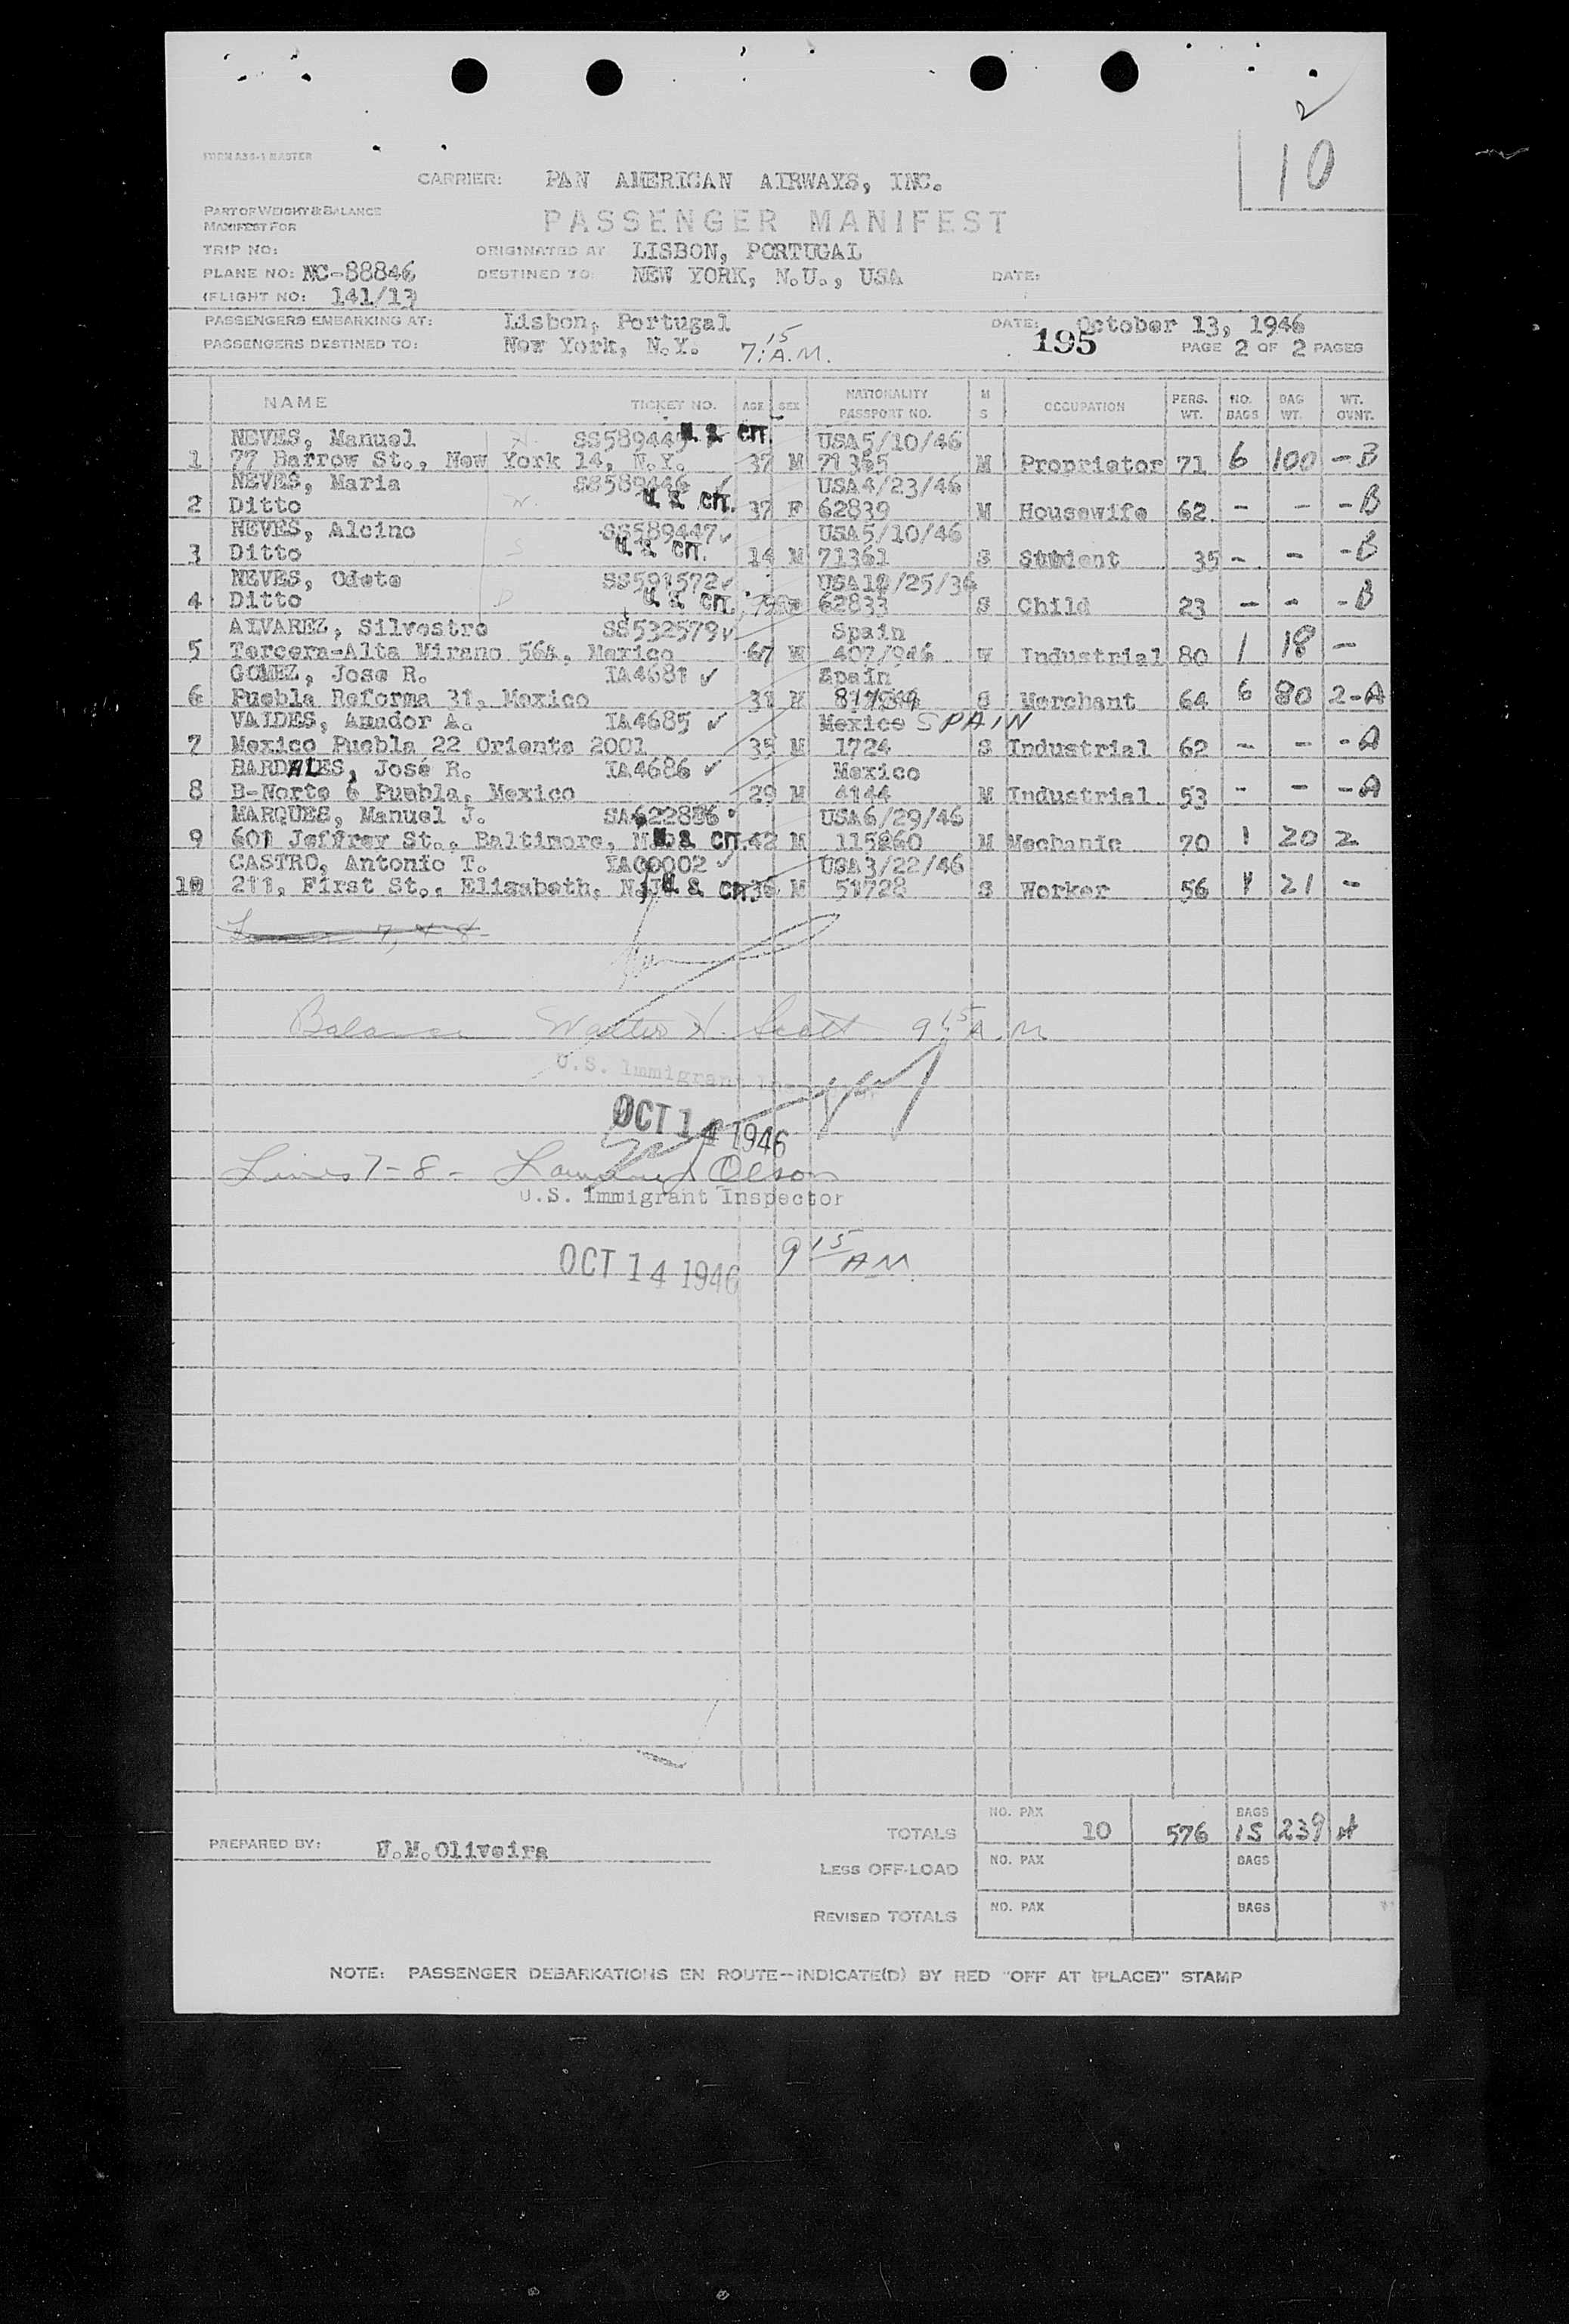 2
10
FORM A36-1 MASTER
CARRIER: PAN AMERICAN AIRWAYS, INC.
PART OF WEIGHT & BALANCE
MANIFEST FOR
PASSENGER MANIFEST
TRIP NO: ORIGINATED AT LISBON, PORTUGAL
PLANE NO: NC-88846 DESTINED TO: NEW YORK, N.U., USA DATE:
(FLIGHT NO: 141/13
PASSENGERS EMBARKING AT: Lisbon, Portugal DATE: October 13, 1946
PASSENGERS DESTINED TO: New York, N.Y. 7:15 A.M. 195 PAGE 2 OF 2 PAGES
NAME TICKET NO. AGE SEX NATIONALITY PASSPORT NO. M S OCCUPATION PERS. WT. NO. BAGS BAG WT. WT. OVNT.
NEVES, Manuel SS589445 U. S. CIT. USA5/10/46
1 77 Barrow St., New York 14, N.Y. 37 M 71365 M Proprietor 71 6 100 - B
NEVES, Maria SS589446 ✓ USA4/23/46
2 Ditto U. S. CIT. 37 F 62839 M Housewife 62 - - - B
NEVES, Alcino SS589447 ✓ USA5/10/46
3 Ditto U. S. CIT. 14 M 71361 S Student 35 - - - B
NEVES, Odete SS591572 ✓
4 Ditto U. S. CIT. 62833 S Child 23 - - - B
ALVAREZ, Silvestre SS532579 ✓ Spain
5 Tercera-Alta Mirano 56A, Mexico 67 M 407/946 W Industrial 80 1 18 -
GOMEZ, Jose R. IA4681 ✓ Spain
6 Puebla Reforma 31, Mexico 31 M S Merchant 64 6 80 2-A
VALDES, Amador A. IA4685 ✓ Mexico SPAIN
7 Mexico Puebla 22 Oriente 2001 35 M 1724 S Industrial 62 - - - A
BARDALES, José R. IA4686 ✓ Mexico
8 B-Norte 6 Puebla, Mexico 29 M 4144 M Industrial 53 - - - A
MARQUES, Manuel J. USA6/29/46
9 601 Jeffrey St., Baltimore, U. S. CIT. 42 M 115260 M Mechanic 70 1 20 2
CASTRO, Antonio T. IA00002 ✓ USA3/22/46
10 211, First St., Elizabeth, N.J. U. S. CIT. M 51728 S Worker 56 1 21 -
7, + 8-
Balance Walter H. Scott 9:15 A.M
U.S. Immigrant
OCT 14 1946
Lines 7-8- Olson
U.S. Immigrant Inspector
OCT 14 1946 9 15 AM.
TOTALS NO. PAX 10 576 BAGS 15 239 A
PREPARED BY: U.M.Oliveira
LESS OFF-LOAD NO. PAX BAGS
REVISED TOTALS NO. PAX BAGS
NOTE: PASSENGER DEBARKATIONS EN ROUTE--INDICATE(D) BY RED "OFF AT (PLACE)" STAMP